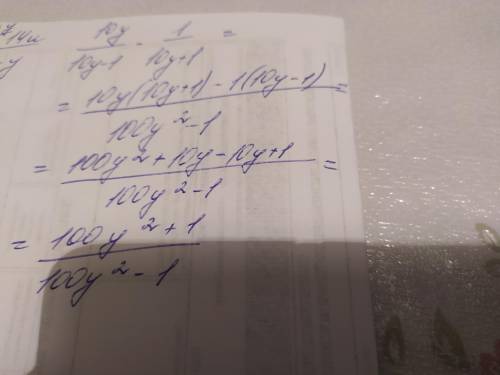 14n 10y/(10y-1) - 1/(10y+1) =
= (10y(10y+1) - 1(10y-1))/(100y²-1) =
= (100y²+10y-10y+1)/(100y²-1) =
= (100y²+1)/(100y²-1)